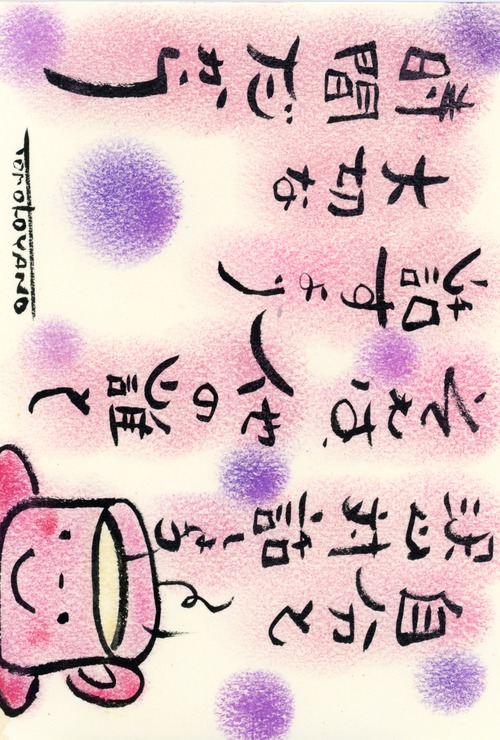 自分と
沢山対話しよう
それは
他の誰と
話すより
大切な
時間だから